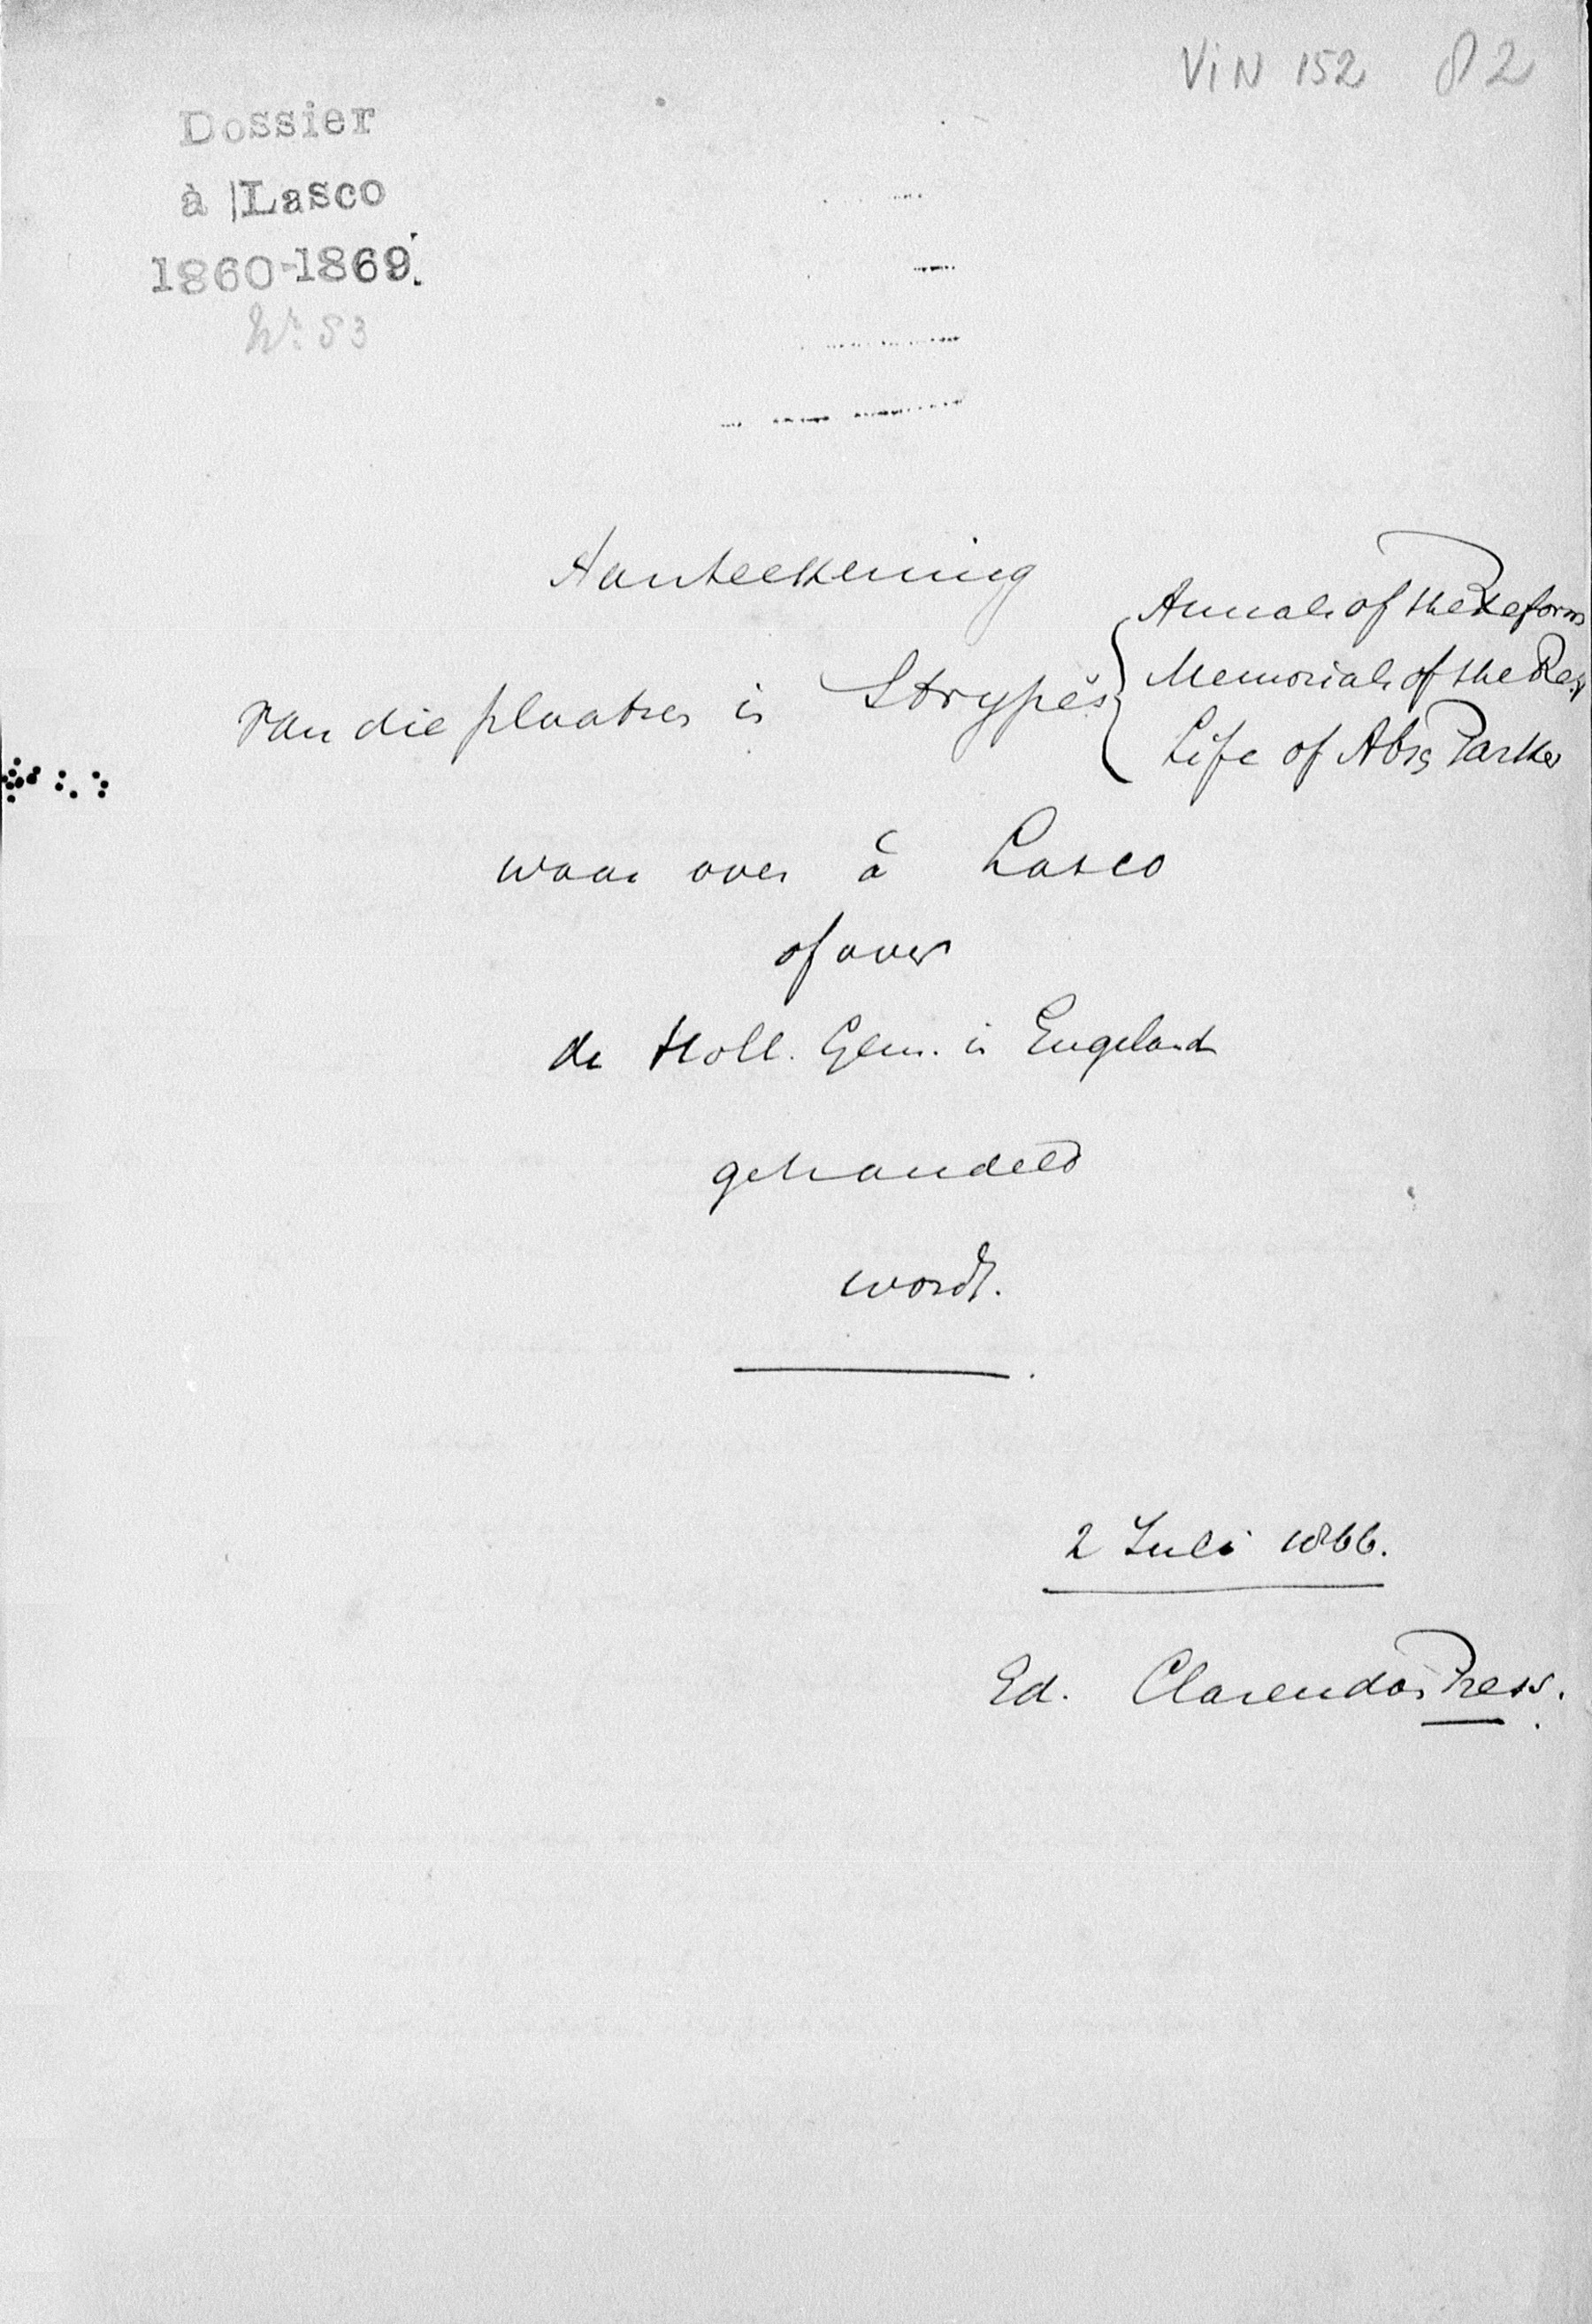 ViN 152 82
Dossier
à Lasco
1860-1869.
Nr. 53
Aanteekening
van die plaatsen in Strype's
Annals of the Reform
Memorials of the Ref
Life of Absp Parker
waar over à Lasco
of over
de Holl. Gem. in Engeland
gehandeld
wordt.
2 Juli 1866.
Ed. Clarendon Press.